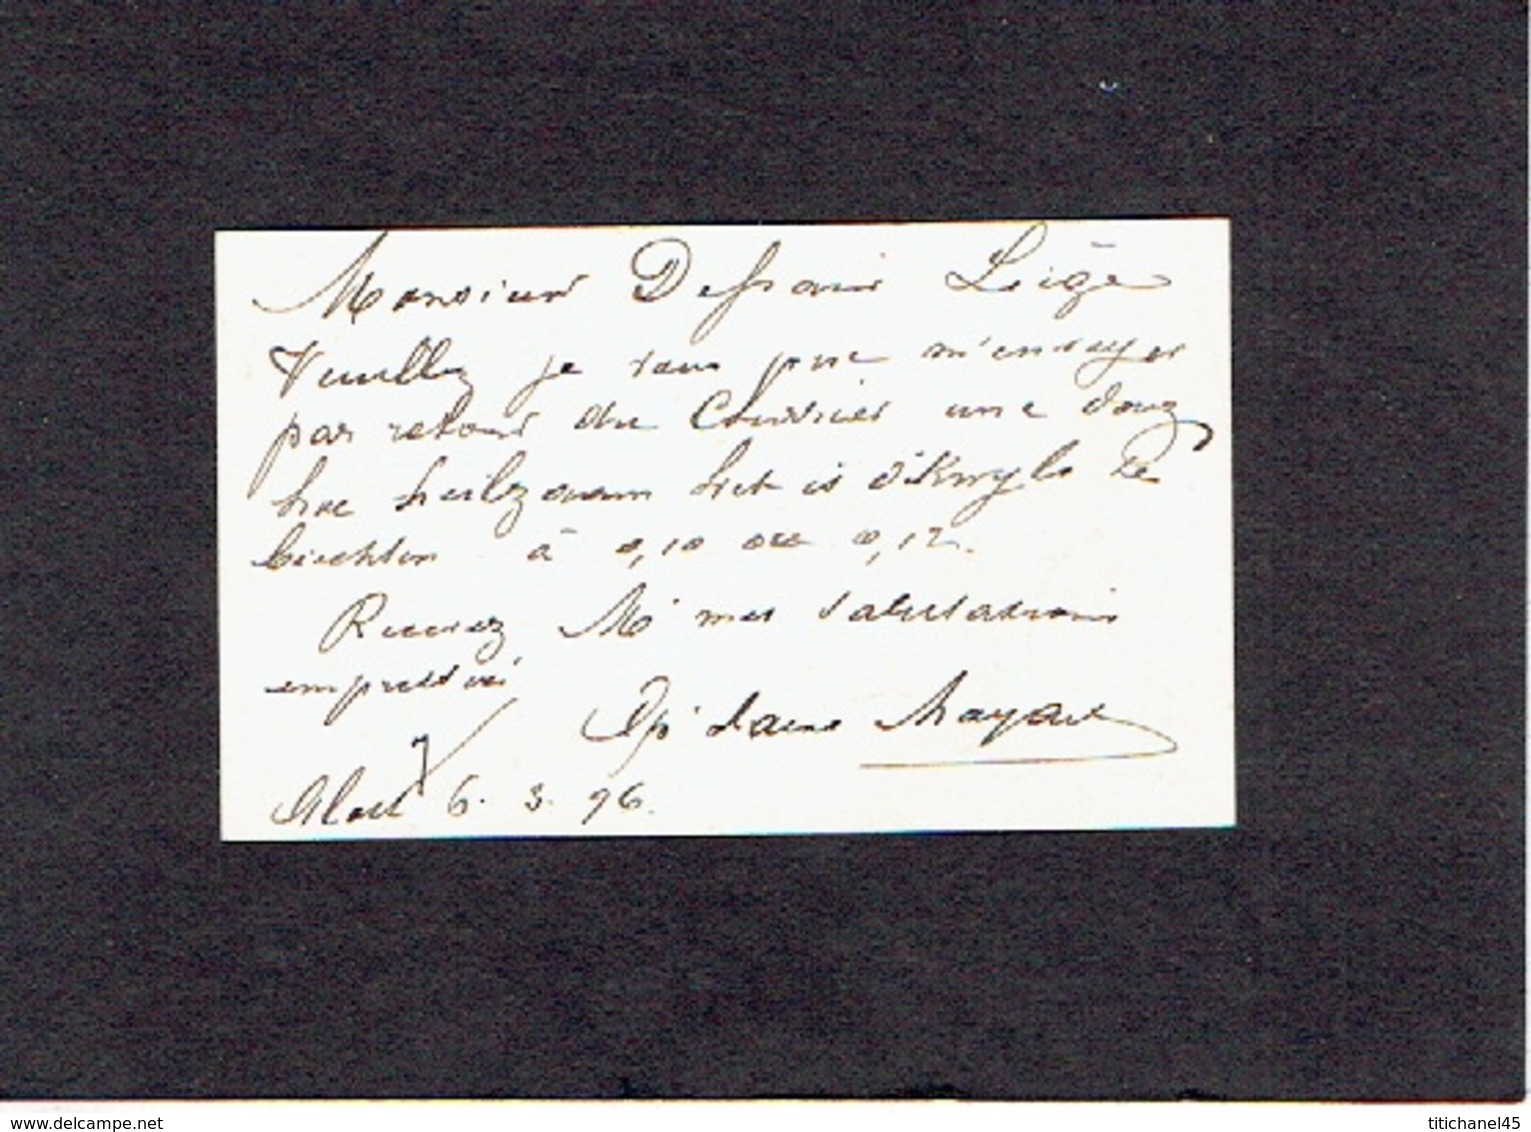 Monsieur Dessain Liège
Veuillez je vous prie m'envoyer
par retour du Courrier une douz
heilzaam
à 0,10 ou 0,12.
Recevez Mr mes salutations
empressées
Mayart
Alost 6. 3. 96.
www.delcampe.net
titichanel45